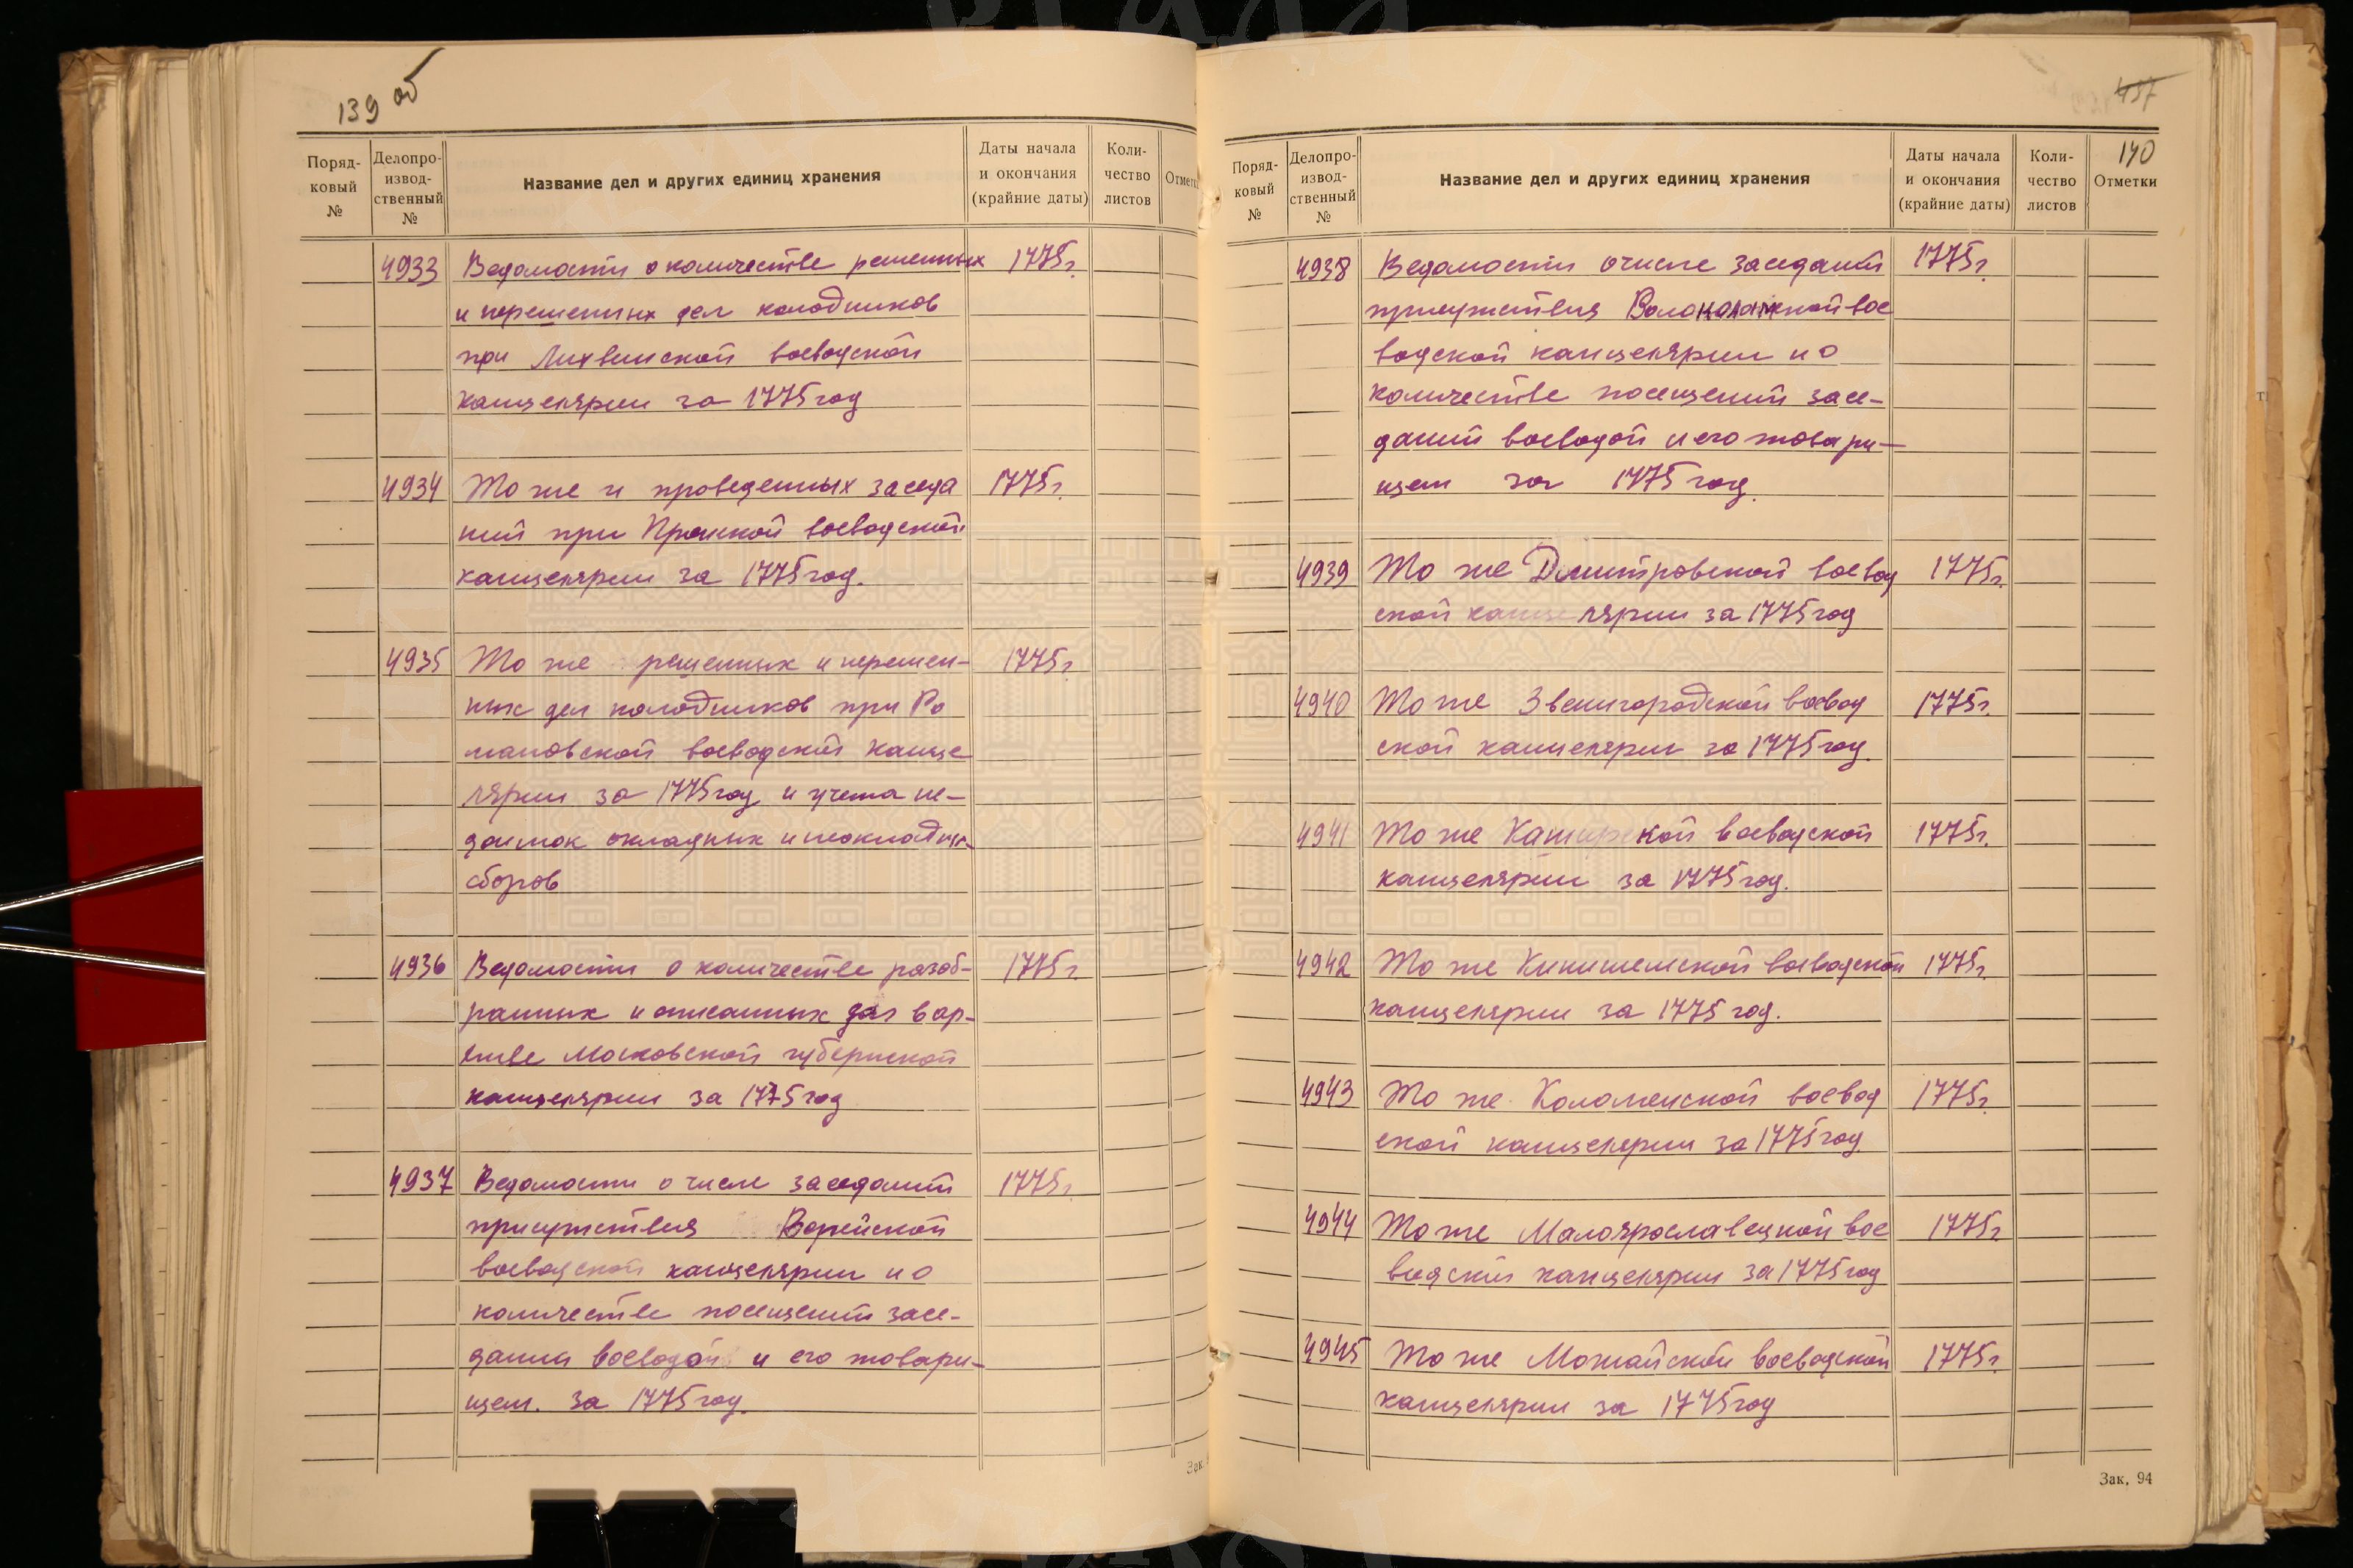 139 об
Поряд-
ковый
№
Делопро-
извод-
ственный
№
Название дел и других единиц хранения
Даты начала
и окончания
(крайние даты)
Коли-
чество
листов
Отмет
4933 Ведомости о количестве решенных 1775г.
и нерешенных дел колодников
при Лихвинской воеводской
канцелярии за 1775 год
4934 То же и проведенных заседа 1775г.
ний при Пронской воеводской
канцелярии за 1775 год.
4935 То же решенных и нерешен- 1775г.
ных дел колодников при Ро
мановской воеводской канце
лярии за 1775 год и учета не-
доимок окладных и неокладных
сборов
4936 Ведомости о количестве разоб- 1775г.
ранных и описанных дел в ар-
хиве Московской губернской
канцелярии за 1775 год
4937 Ведомости о числе заседаний 1775г.
присутствия Верейской
воеводской канцелярии и о
количестве посещений засе-
дания воеводой и его товари-
щем. за 1775 год.
Зак.
437
140
Поряд-
ковый
№
Делопро-
извод-
ственный
№
Название дел и других единиц хранения
Даты начала
и окончания
(крайние даты)
Коли-
чество
листов
Отметки
4938 Ведомости о числе заседаний 1775г.
присутствия Волоколамской вое
водской канцелярии и о
количестве посещений засе-
даний воеводой и его товари-
щем за 1775 год.
4939 То же Дмитровской воевод 1775г.
ской канцелярии за 1775 год
4940 То же Звенигородской воевод 1775г.
ской канцелярии за 1775 год.
4941 То же Каширской воеводской 1775г.
канцелярии за 1775 год.
4942 То же Кинишемской воеводской 1775г.
канцелярии за 1775 год.
4943 То же Коломенской воевод 1775г.
ской канцелярии за 1775 год.
4944 То же Малоярославецкой вое 1775г.
водской канцелярии за 1775 год
4945 То же Можайской воеводской 1775г.
канцелярии за 1775 год
Зак. 94